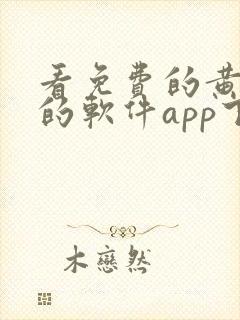 看免費的黄
的軟件app下
木戀然